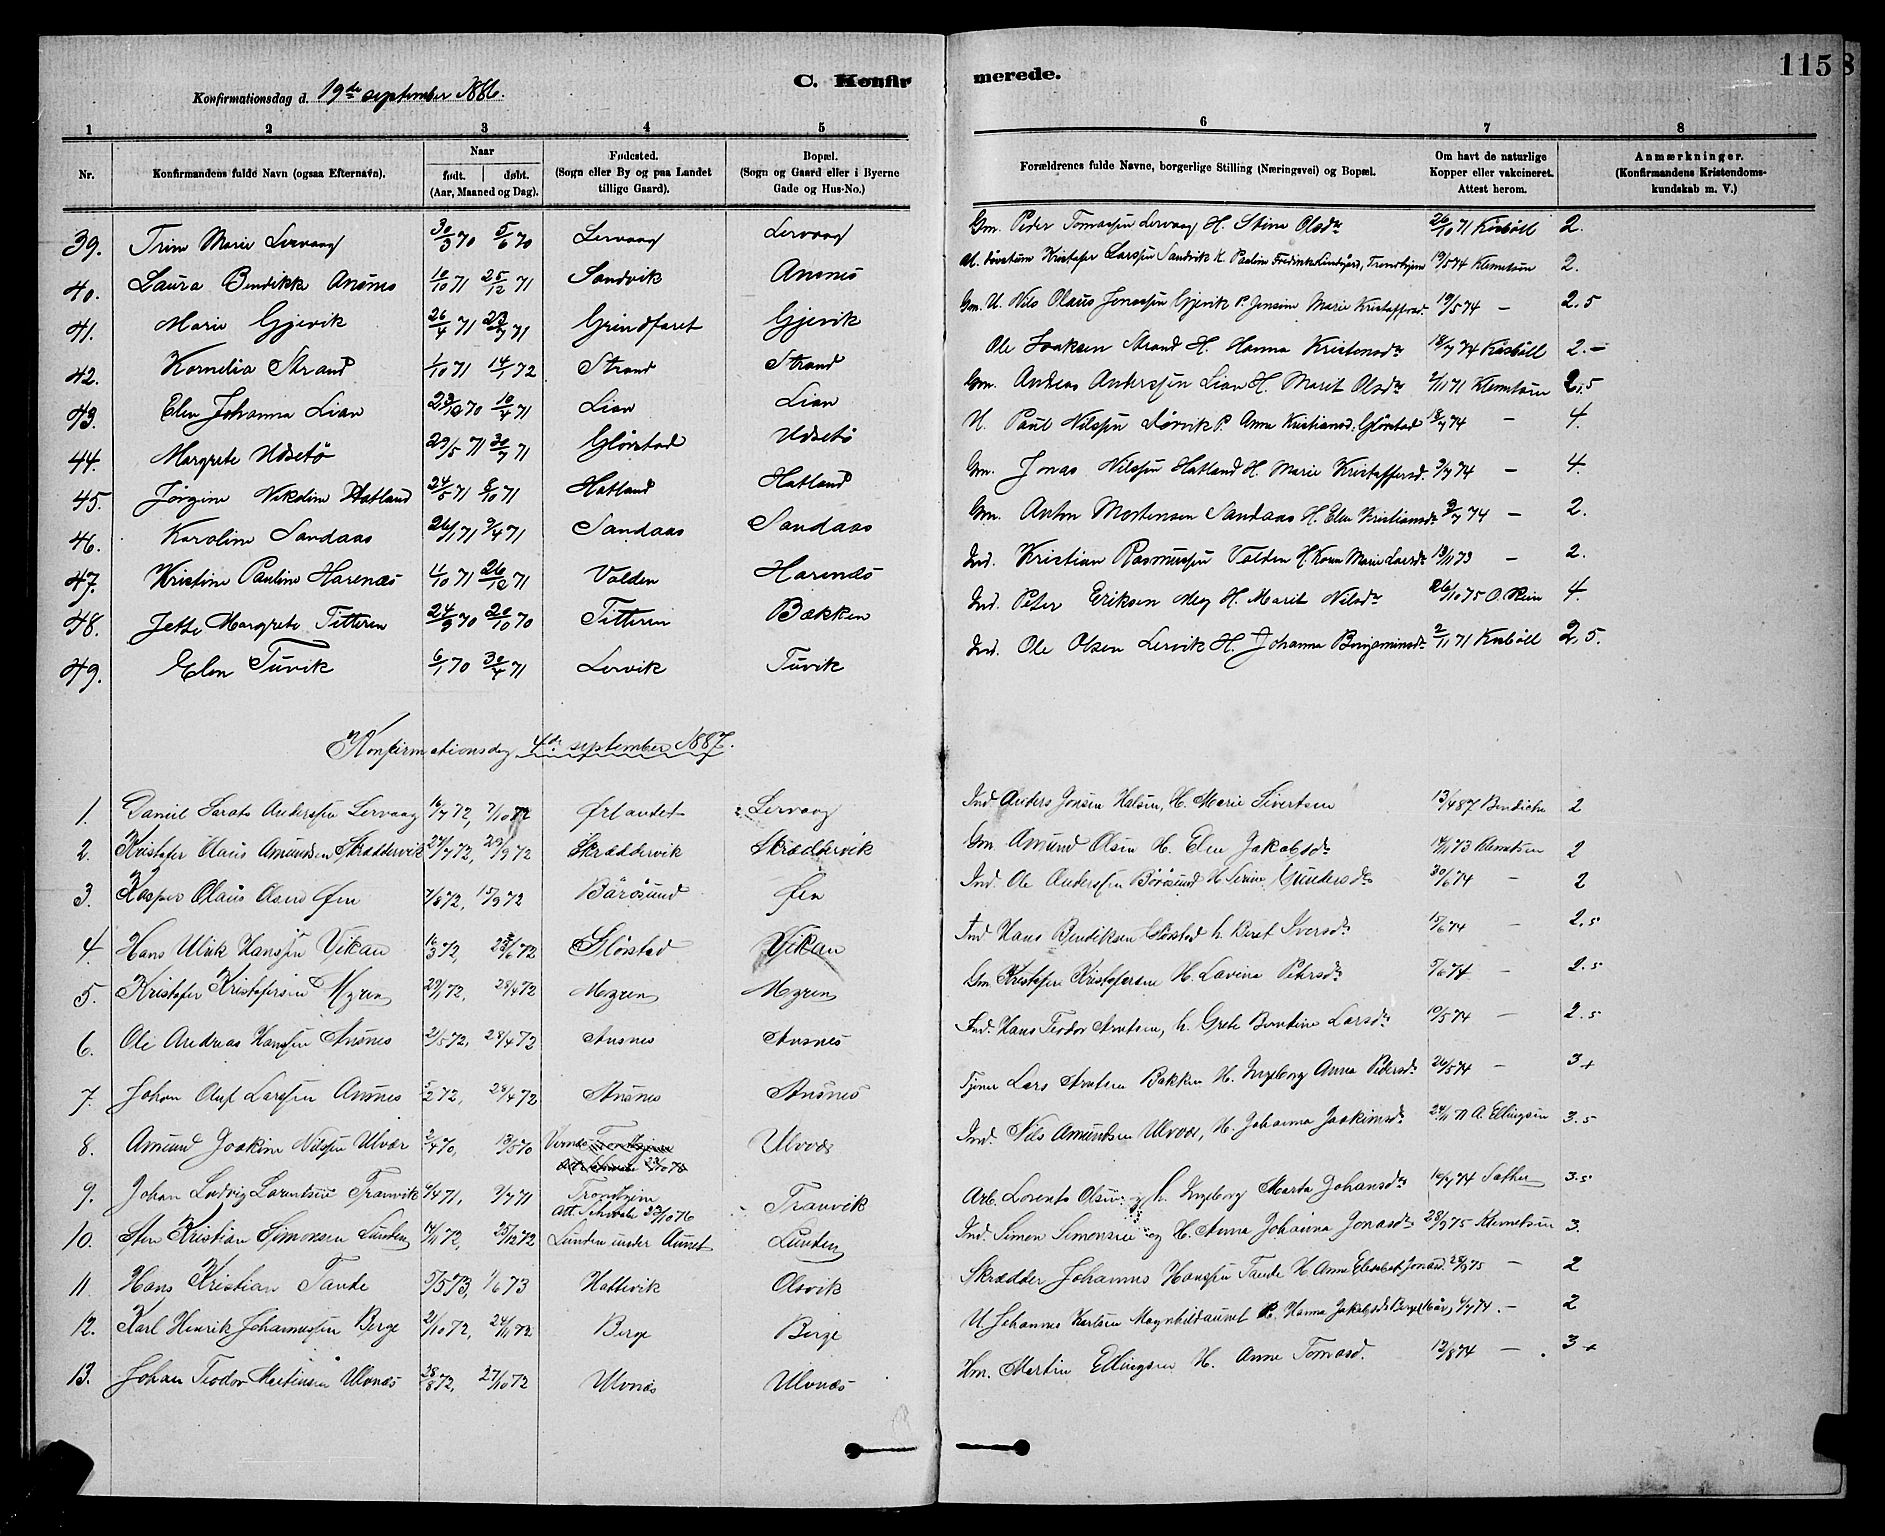 115
C. Konfirmerede.
Konfirmationsdag d. 19de september 1886.
1 2 3 4 5 6 7 8
Nr. Konfirmandens fulde Navn (ogsaa Efternavn). Naar født. døbt. (Aar, Maaned og Dag). Fødested. (Sogn eller By og paa Landet tillige Gaard). Bopæl. (Sogn og Gaard eller i Byerne Gade og Hus-No.) Forældrenes fulde Navne, borgerlige Stilling (Næringsvei) og Bopæl. Om havt de naturlige Kopper eller vakcineret. Attest herom. Anmærkninger. (Konfirmandens Kristendomskundskab m. V.)
39. Trine Marie Lervaag 30/3 70 5/6 70 Lervaag Lervaag Gm. Peder Tomassen Lervaag H. Stine Olsdr 26/10 71 2.
40. Laura Bendikke Ansnes 10/10 71 25/12 71 Sandvik Ansnes Kristofer Larssen Sandvik Trondhjem 19/5 74 Klemetsen 2.
41. Marie Gjevik 26/4 71 23/7 71 Grindfaret Gjevik Gm. U. Nils Olaus Jonassen Gjevik P. Jensine Marie Kristoffersd. 19/5 74 — 2.5
42. Kornelia Strand 1/10 71 14/1 72 Strand Strand Ole Isaksen Strand H. Hanna Kristensdr 18/7 74 2.—
43. Elen Johanna Lian 23/12 70 10/4 71 Lian Lian Gm. Andreas Anderssen Lian H. Marit Olsdr 2/11 71 Klemetsen 2.5
44. Margrete Udsetø 29/5 71 30/7 71 Glørstad Udsetø U. Paul Nilssen Dørvik P. Anne Kristiansd. Glørstad 18/7 74 — 4.
45. Jørgine Nikoline Hatland 24/5 71 8/10 71 Hatland Hatland Gm. Jonas Nilssen Hatland H. Marie Kristoffersd. 9/7 74 — 4.
46. Karoline Sandaas 26/1 71 9/4 71 Sandaas Sandaas Gm. Anton Mortensen Sandaas H. Elen Kristiansdr 9/7 74 — 2.
47. Kristine Pauline Harenæs 11/10 71 26/12 71 Valden Harenæs Ind. Kristian Rasmussen Valden H. Karen Marie Larsdr 13/11 73 — 2.
48. Jette Margrete Titteren 24/9 70 20/10 70 Titteren Bækken Ind. Peter Eriksen Meg H. Marit Nilsdr 26/10 75 O. Rein 4.
49. Elen Tuvik 6/1 70 30/4 71 Lervik Tuvik Ind. Ole Olsen Lervik H. Johanna Benjaminsdr 2/11 71 2,5.
Konfirmationsdag 4de september 1887.
1. Daniel Anderssen Lervaag 16/7 72, 7/10 72 Ørlandet Lervaag Ind Anders Jonsen Halsen, H. Marie Sivertsen 13/4 87 Bendiche 2
2. Kristofer Olaus Amundsen Skræddervik 27/7 72, 29/9 72 Skræddervik Skræddervik Gm Amund Olsen H. Elen Jakobsdr 14/11 73 Klemetsen 2
3. Kasper Olaus Olsen Øen 7/8 72, 15/9 72 Bårøsund Øen Ind. Ole Anderssen Børøsund H. Serine Gundersdr 30/6 74 — 2
4. Hans Ulrik Hanssen Vikan 16/3 72, 23/6 72 Glørstad Vikan Ind Hans Bendiksen Glørstad h. Beret Iversdr 15/6 74 — 2.5
5. Kristofer Kristofersen Myren 29/1 72, 28/4 72 Myren Myren Gm. Kristofer Kristofersen H. Lavina Petersdr 5/6 74 — 2.5
6. Ole Andreas Hanssen Ansnes 21/5 72, 28/4 72 Ansnes Ansnes Ind. Hans Teodor Arntsen, h. Grete Berntine Larsdr 19/5 74 — 2.5
7. Johan Olaf Larssen Ansnes 5/2 72, 28/4 72 Ansnes Ansnes Tjener Lars Arntsen Bakken H. Ingeborg Anna Pedersdr 26/5 74 — 3+
8. Amund Joakim Nilssen Ulvær 2/4 70, 13/5 70 Ulvær Ind. Nils Amundsen Ulvær, H. Johanna Joakimsdr A. Ellingsen 3.5
9. Johan Ludvig Lorentsen Tranvik 4/4 71, 9/7 71 Trondhjem Att. Schwabe 23/10 76 Tranvik Arb. Lorents Olsen og h. Ingeborg Marta Johansdr 19/7 74 Sather 3.5
10. Sten Kristian Simonsen Lunden 14/11 72, 25/12 72 Lunden under Aunet Lunden Ind. Simon Simonsen og H. Anna Johanna Jonasdr 28/9 75 Klemetsen 3.
11. Hans Kristian Tande 5/5 73, 1/6 73 Hattevik Olsvik Skrædder Johannes Hanssen Tande H Anne Elisabet Jonasd. 28/9 75 — 2
12. Karl Henrik Johannessen Berge 21/10 72, 24/11 72 Berge Berge U. Johannes Karlsen Magnhildaunet P. Hanna Jakobsdr 4/7 74. — 2
13. Johan Teodor Martinsen Ulvnes 28/8 72, 27/10 72 Ulvnes Ulvnes Hm. Martin Ellingsen H. Anne Tomasd. 12/8 74 — 3+